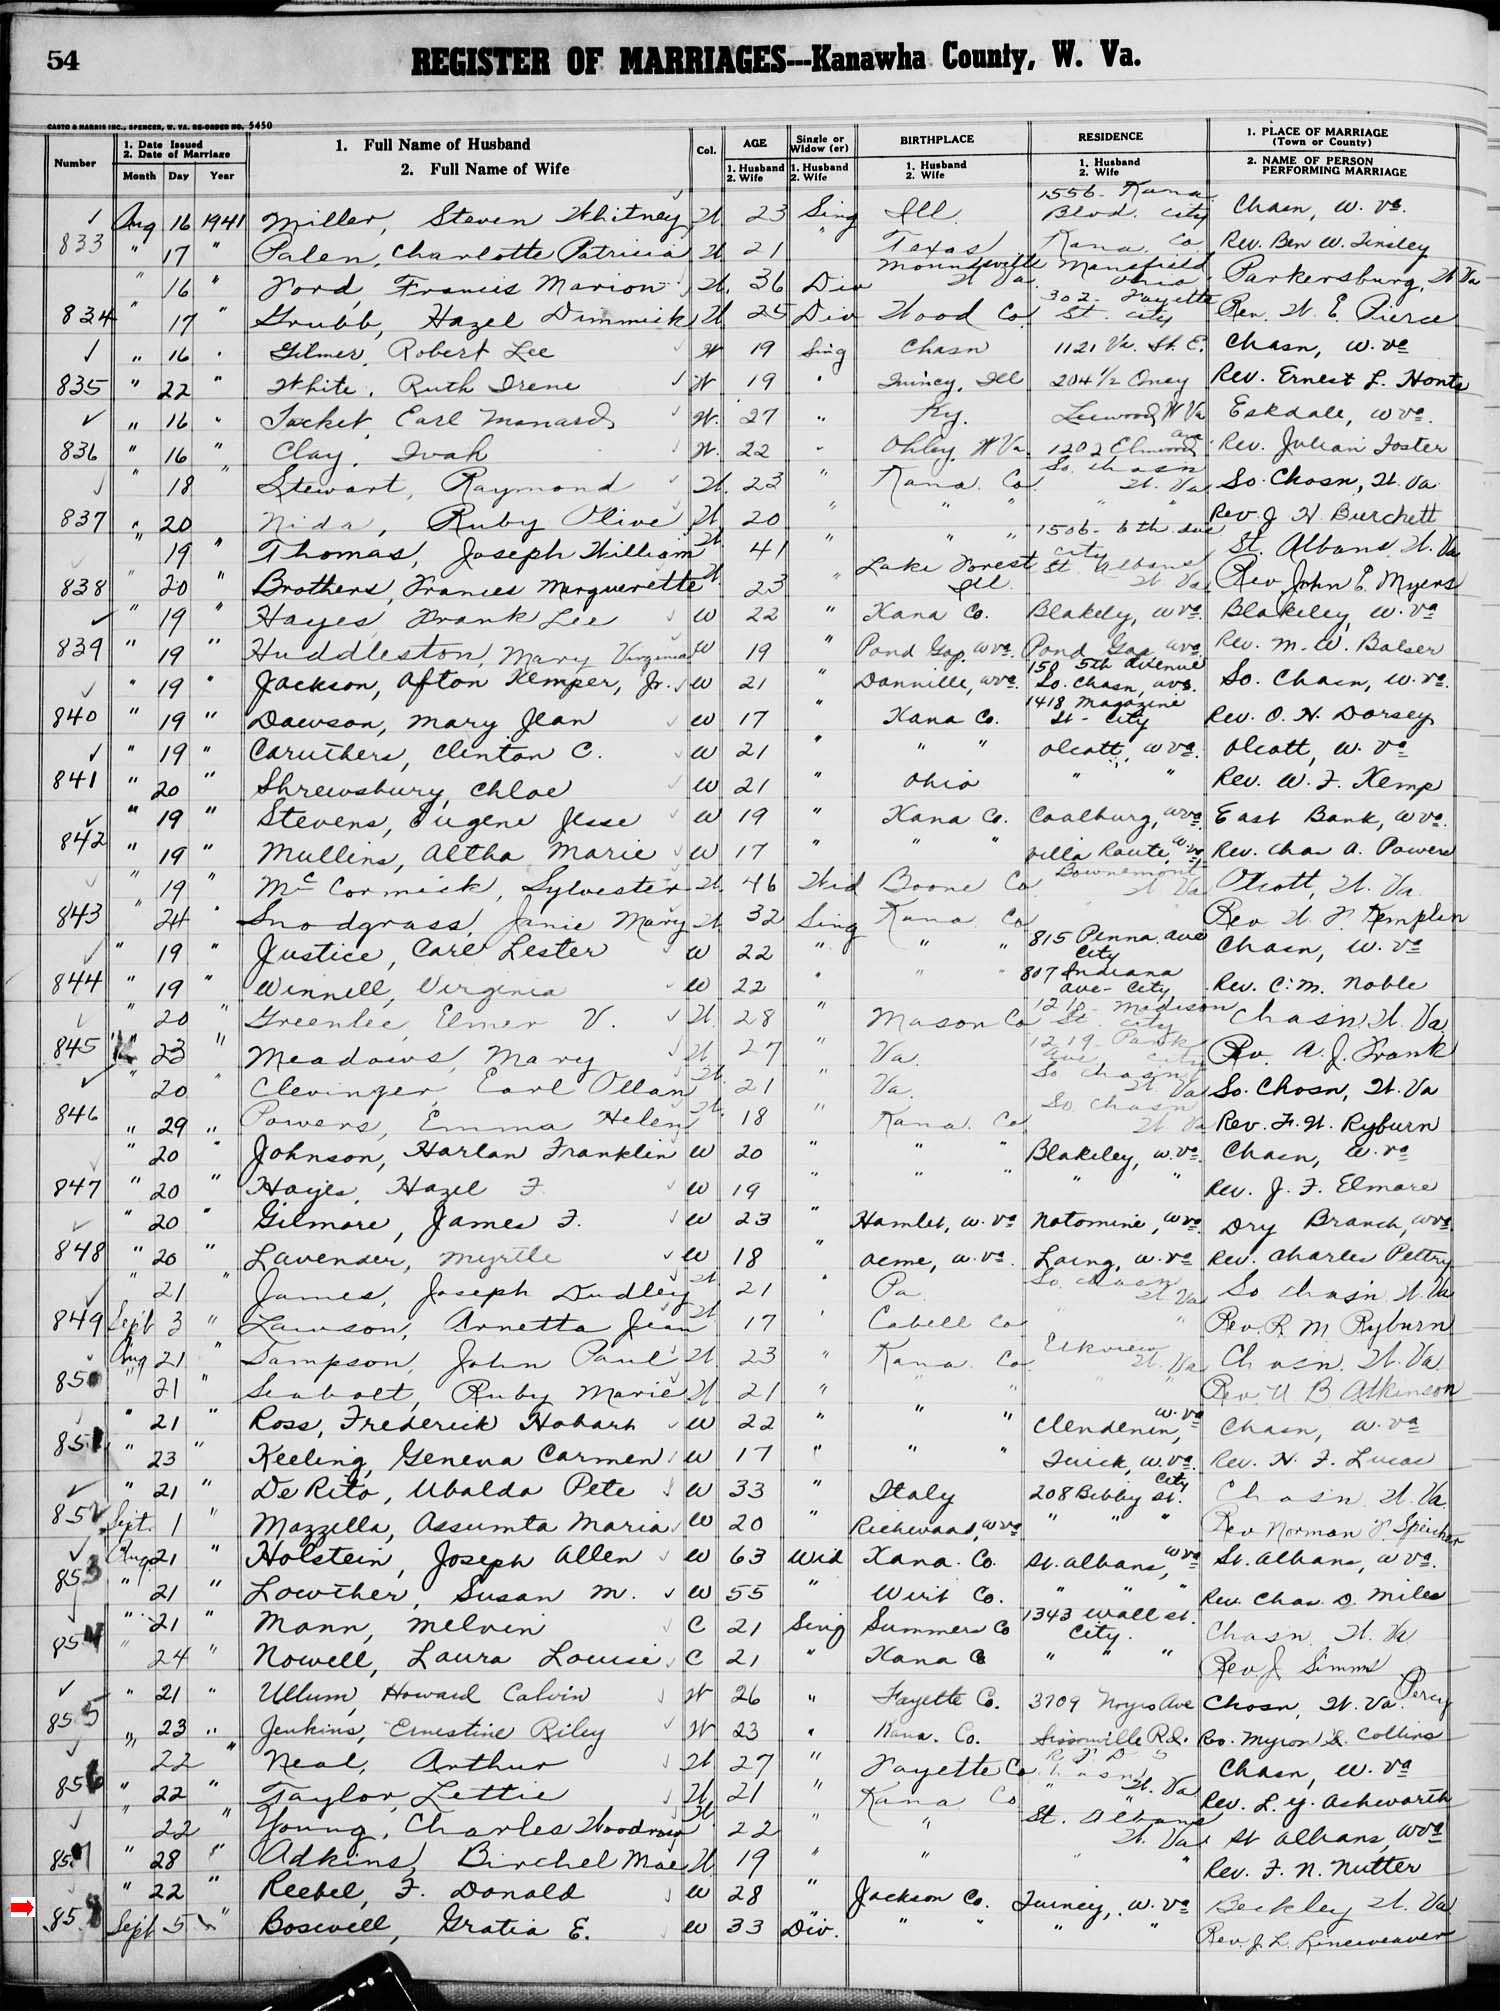 54
REGISTER OF MARRIAGES---Kanawha County, W. Va.
CASTO & HARRIS INC., SPENCER, W. VA. RE-ORDER NO. 5450
Number 1. Date Issued 2. Date of Marriage Month Day Year 1. Full Name of Husband 2. Full Name of Wife Col. AGE 1. Husband 2. Wife Single or Widow (er) 1. Husband 2. Wife BIRTHPLACE 1. Husband 2. Wife RESIDENCE 1. Husband 2. Wife 1. PLACE OF MARRIAGE (Town or County) 2. NAME OF PERSON PERFORMING MARRIAGE
Aug 16 1941 Miller, Steven Whitney W. 23 Sing Ill. 1556 - Kana Blvd. City Chasn, W. Va.
833 " 17 " Palen, Charlotte Patricia W 21 " Texas Kana. Co Rev. Ben W. Tinsley
" 16 " Ford, Francis Marion W. 36 Div Moundsville W Va. Mansfield Ohio Parkersburg, W Va
834 " 17 " Grubb, Hazel Dimmick W 25 Div Wood Co. 302 - Fayette St. City Rev. W. E. Pierce
" 16 " Gilmer, Robert Lee W 19 Sing Chasn 1121 Va. St. E. Chasn, W. Va
835 " 22 " White, Ruth Irene W 19 " Quincy, Ill 204 1/2 Oney Rev. Ernest L. Honts
" 16 " Tacket, Earl Manard W. 27 " Ky. Leewood, W Va Eskdale, W Va.
836 " 16 " Clay, Ivah W. 22 " Ohley, W Va. 1202 Elmwood Ave. Rev. Julian Foster
" 18 " Stewart, Raymond W. 23 " Kana. Co. So. Chasn W. Va. So. Chasn, W. Va
837 " 20 Nida, Ruby Olive W. 20 " " " " " Rev. J. H. Burchett
" 19 " Thomas, Joseph William W. 41 " " " 1506 - 6th Ave City St. Albans, W. Va
838 " 20 " Brothers, Frances Marguerette W. 23 " Lake Forest Ill. St. Albans W. Va. Rev John E. Myers
" 19 " Hayes, Frank Lee W 22 " Kana Co. Blakeley, W Va. Blakeley, W. Va
839 " 19 " Huddleston, Mary Virginia W 19 " Pond Gap, W Va. Pond Gap, W Va. Rev. M. W. Balser
" 19 " Jackson, Afton Kemper, Jr. W 21 " Danville, W Va. 150 5th Avenue So. Chasn, W Va. So. Chasn, W. Va.
840 " 19 " Dawson, Mary Jean W 17 " Kana Co. 1418 Magazine St - City Rev. O. H. Dorsey
" 19 " Caruthers, Clinton C. W 21 " " " Olcott, W Va. Olcott, W. Va
841 " 20 " Shrewsbury, Chloe W 21 " Ohio " " Rev. W. F. Kemp
" 19 " Stevens, Eugene Jesse W 19 " Kana Co. Coalburg, W Va. East Bank, W Va.
842 " 19 " Mullins, Altha Marie W 17 " " " Villa Route, W. Va. Rev. Chas A. Powers
" 19 " McCormick, Sylvester W. 46 Wid Boone Co. W Va Olcott, W. Va.
843 " 24 " Snodgrass, Janie Mary W. 32 Sing Kana Co " " Rev W. F. Kemplin
" 19 " Justice, Carl Lester W 22 " " " 815 Penna. Ave City Chasn, W. Va
844 " 19 " Winnell, Virginia W 22 " " " 807 Indiana Ave - City Rev. C. M. Noble
" 20 " Greenlee, Elmer V. W. 28 " Mason Co 1210 - Madison St. City Chasn, W. Va.
845 " 23 " Meadows, Mary W. 27 " Va. 1219 - Park Ave City Rev. A. J. Frank
" 20 " Clevinger, Earl Ollan W. 21 " Va. So Chasn W. Va So. Chasn, W. Va
846 " 29 " Powers, Emma Helen W. 18 " Kana. Co So. Chasn W. Va Rev. F. W. Ryburn
" 20 " Johnson, Harlan Franklin W 20 " " " Blakeley, W. Va. Chasn, W. Va
847 " 20 " Hayes, Hazel F. W 19 " " " " " Rev. J. F. Elmore
" 20 " Gilmore, James F. W 23 " Hamlet, W. Va Natomine, W Va Dry Branch, W Va.
848 " 20 " Lavender, Myrtle W 18 " Acme, W. Va. Laing, W. Va Rev. Charles Pettry
" 21 " James, Joseph Dudley W. 21 " Pa. So. Chasn W. Va So Chasn W. Va
849 Sept 3 " Lawson, Arnetta Jean W 17 " Cabell Co " " Rev. R. M. Ryburn
Aug 21 " Sampson, John Paul W. 23 " Kana. Co Elkview W. Va. Chasn. W. Va.
850 " 21 " Seabolt, Ruby Marie W 21 " " " " " Rev. U B Atkinson
" 21 " Ross, Frederick Hobart W 22 " " " Clendenin, W. Va Chasn, W. Va
851 " 23 " Keeling, Geneva Carmen W 17 " " " Quick, W. Va. Rev. H. F. Lucas
" 21 " DeRito, Ubaldo Pete W 33 " Italy 208 Bibby St. City Chasn W. Va.
852 Sept. 1 " Mazzella, Assumta Maria W 20 " Richwood, W Va " " " Rev Norman F. Speicher
Aug. 21 " Holstein, Joseph Allen W 63 Wid Kana. Co. St. Albans, W Va St. Albans, W Va.
853 " 21 " Lowther, Susan M. W 55 " Wirt Co. " " " Rev. Chas. D. Miles
" 21 " Mann, Melvin C 21 Sing Summers Co 1343 Wall St. City. Chasn. W. Va
854 " 24 " Nowell, Laura Louise C 21 " Kana Co " " " Rev. J. Simms
" 21 " Ullum, Howard Calvin W 26 " Fayette Co. 3709 Noyes Ave Chasn, W. Va.
855 " 23 " Jenkins, Ernestine Riley W 23 " Kana. Co. Sissonville Rd. Rev. Myron Percy Collins
" 22 " Neal, Arthur W 27 " Fayette Co Chasn, W. Va
856 " 22 " Taylor, Lettie W. 21 " Kana Co " W. Va Rev. L. Y. Ashworth
" 22 " Young, Charles Woodrow W. 22 " " St. Albans W. Va St Albans, W Va
857 " 28 " Adkins, Birchel Mae W 19 " " " " Rev. F. N. Nutter
" 22 " Reebel, F. Donald W 28 " Jackson Co. Turney, W. Va Beckley W. Va
858 Sept 5 " Boswell, Gratia E. W 33 Div. " " " " Rev. J. L. Lineweaver